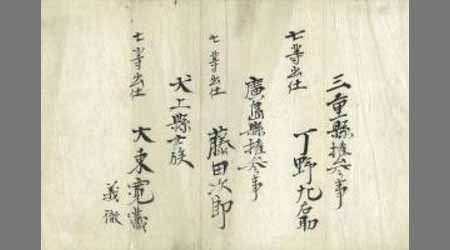 三重縣権参事
七等出仕 丁野丸右助
廣島縣権参事
七等出仕 藤田次郎
犬上縣士族
七等出仕 大東寛蔵
義徹